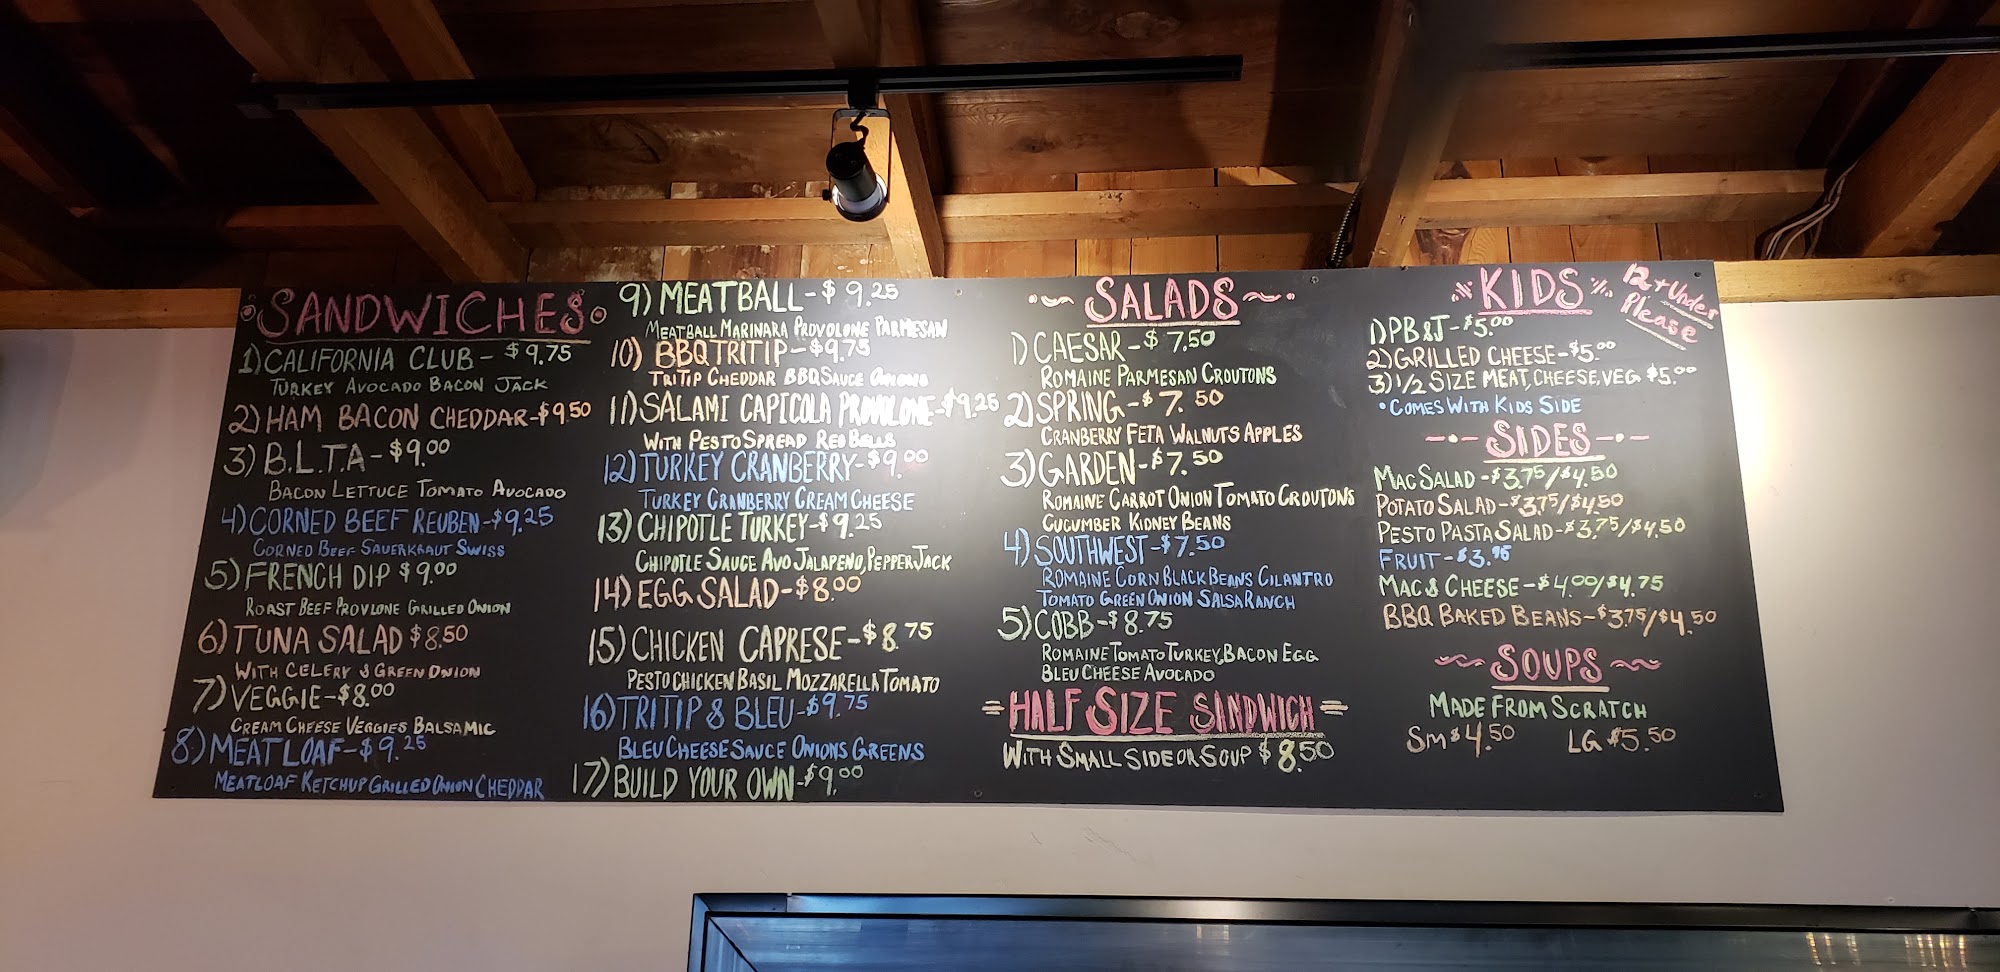 SANDWICHES
1) CALIFORNIA CLUB - $9.75
TURKEY AVOCADO BACON JACK
2) HAM BACON CHEDDAR - $9.50
3) B.L.T.A - $9.00
BACON LETTUCE TOMATO AVOCADO
4) CORNED BEEF REUBEN - $9.25
CORNED BEEF SAUERKRAUT SWISS
5) FRENCH DIP $9.00
ROAST BEEF PROVLONE GRILLED ONION
6) TUNA SALAD $8.50
WITH CELERY & GREEN ONION
7) VEGGIE - $8.00
CREAM CHEESE VEGGIES BALSAMIC
8) MEATLOAF - $9.25
MEATLOAF KETCHUP GRILLED ONION CHEDDAR
9) MEATBALL - $9.25
MEATBALL MARINARA PROVOLONE PARMESAN
10) BBQ TRITIP - $9.75
TRITIP CHEDDAR BBQ SAUCE ONIONS
11) SALAMI CAPICOLA PROVOLONE - $9.25
WITH PESTO SPREAD RED BELLS
12) TURKEY CRANBERRY - $9.00
TURKEY CRANBERRY CREAM CHEESE
13) CHIPOTLE TURKEY - $9.25
CHIPOTLE SAUCE AVO JALAPENO, PEPPER JACK
14) EGG SALAD - $8.00
15) CHICKEN CAPRESE - $8.75
PESTO CHICKEN BASIL MOZZARELLA TOMATO
16) TRITIP & BLEU - $9.75
BLEU CHEESE SAUCE ONIONS GREENS
17) BUILD YOUR OWN - $9.00
SALADS
1) CAESAR - $7.50
ROMAINE PARMESAN CROUTONS
2) SPRING - $7.50
CRANBERRY FETA WALNUTS APPLES
3) GARDEN - $7.50
ROMAINE CARROT ONION TOMATO CROUTONS
CUCUMBER KIDNEY BEANS
4) SOUTHWEST - $7.50
ROMAINE CORN BLACK BEANS CILANTRO
TOMATO GREEN ONION SALSA RANCH
5) COBB - $8.75
ROMAINE TOMATO TURKEY, BACON EGG
BLEU CHEESE AVOCADO
HALF SIZE SANDWICH
WITH SMALL SIDE OR SOUP $8.50
KIDS
12 + Under
Please
1) PB&J - $5.00
2) GRILLED CHEESE - $5.00
3) 1/2 SIZE MEAT, CHEESE, VEG $5.00
• COMES WITH KIDS SIDE
SIDES
MAC SALAD - $3.75/$4.50
POTATO SALAD - $3.75/$4.50
PESTO PASTA SALAD - $3.75/$4.50
FRUIT - $3.95
MAC & CHEESE - $4.00/$4.75
BBQ BAKED BEANS - $3.75/$4.50
SOUPS
MADE FROM SCRATCH
SM $4.50 LG $5.50